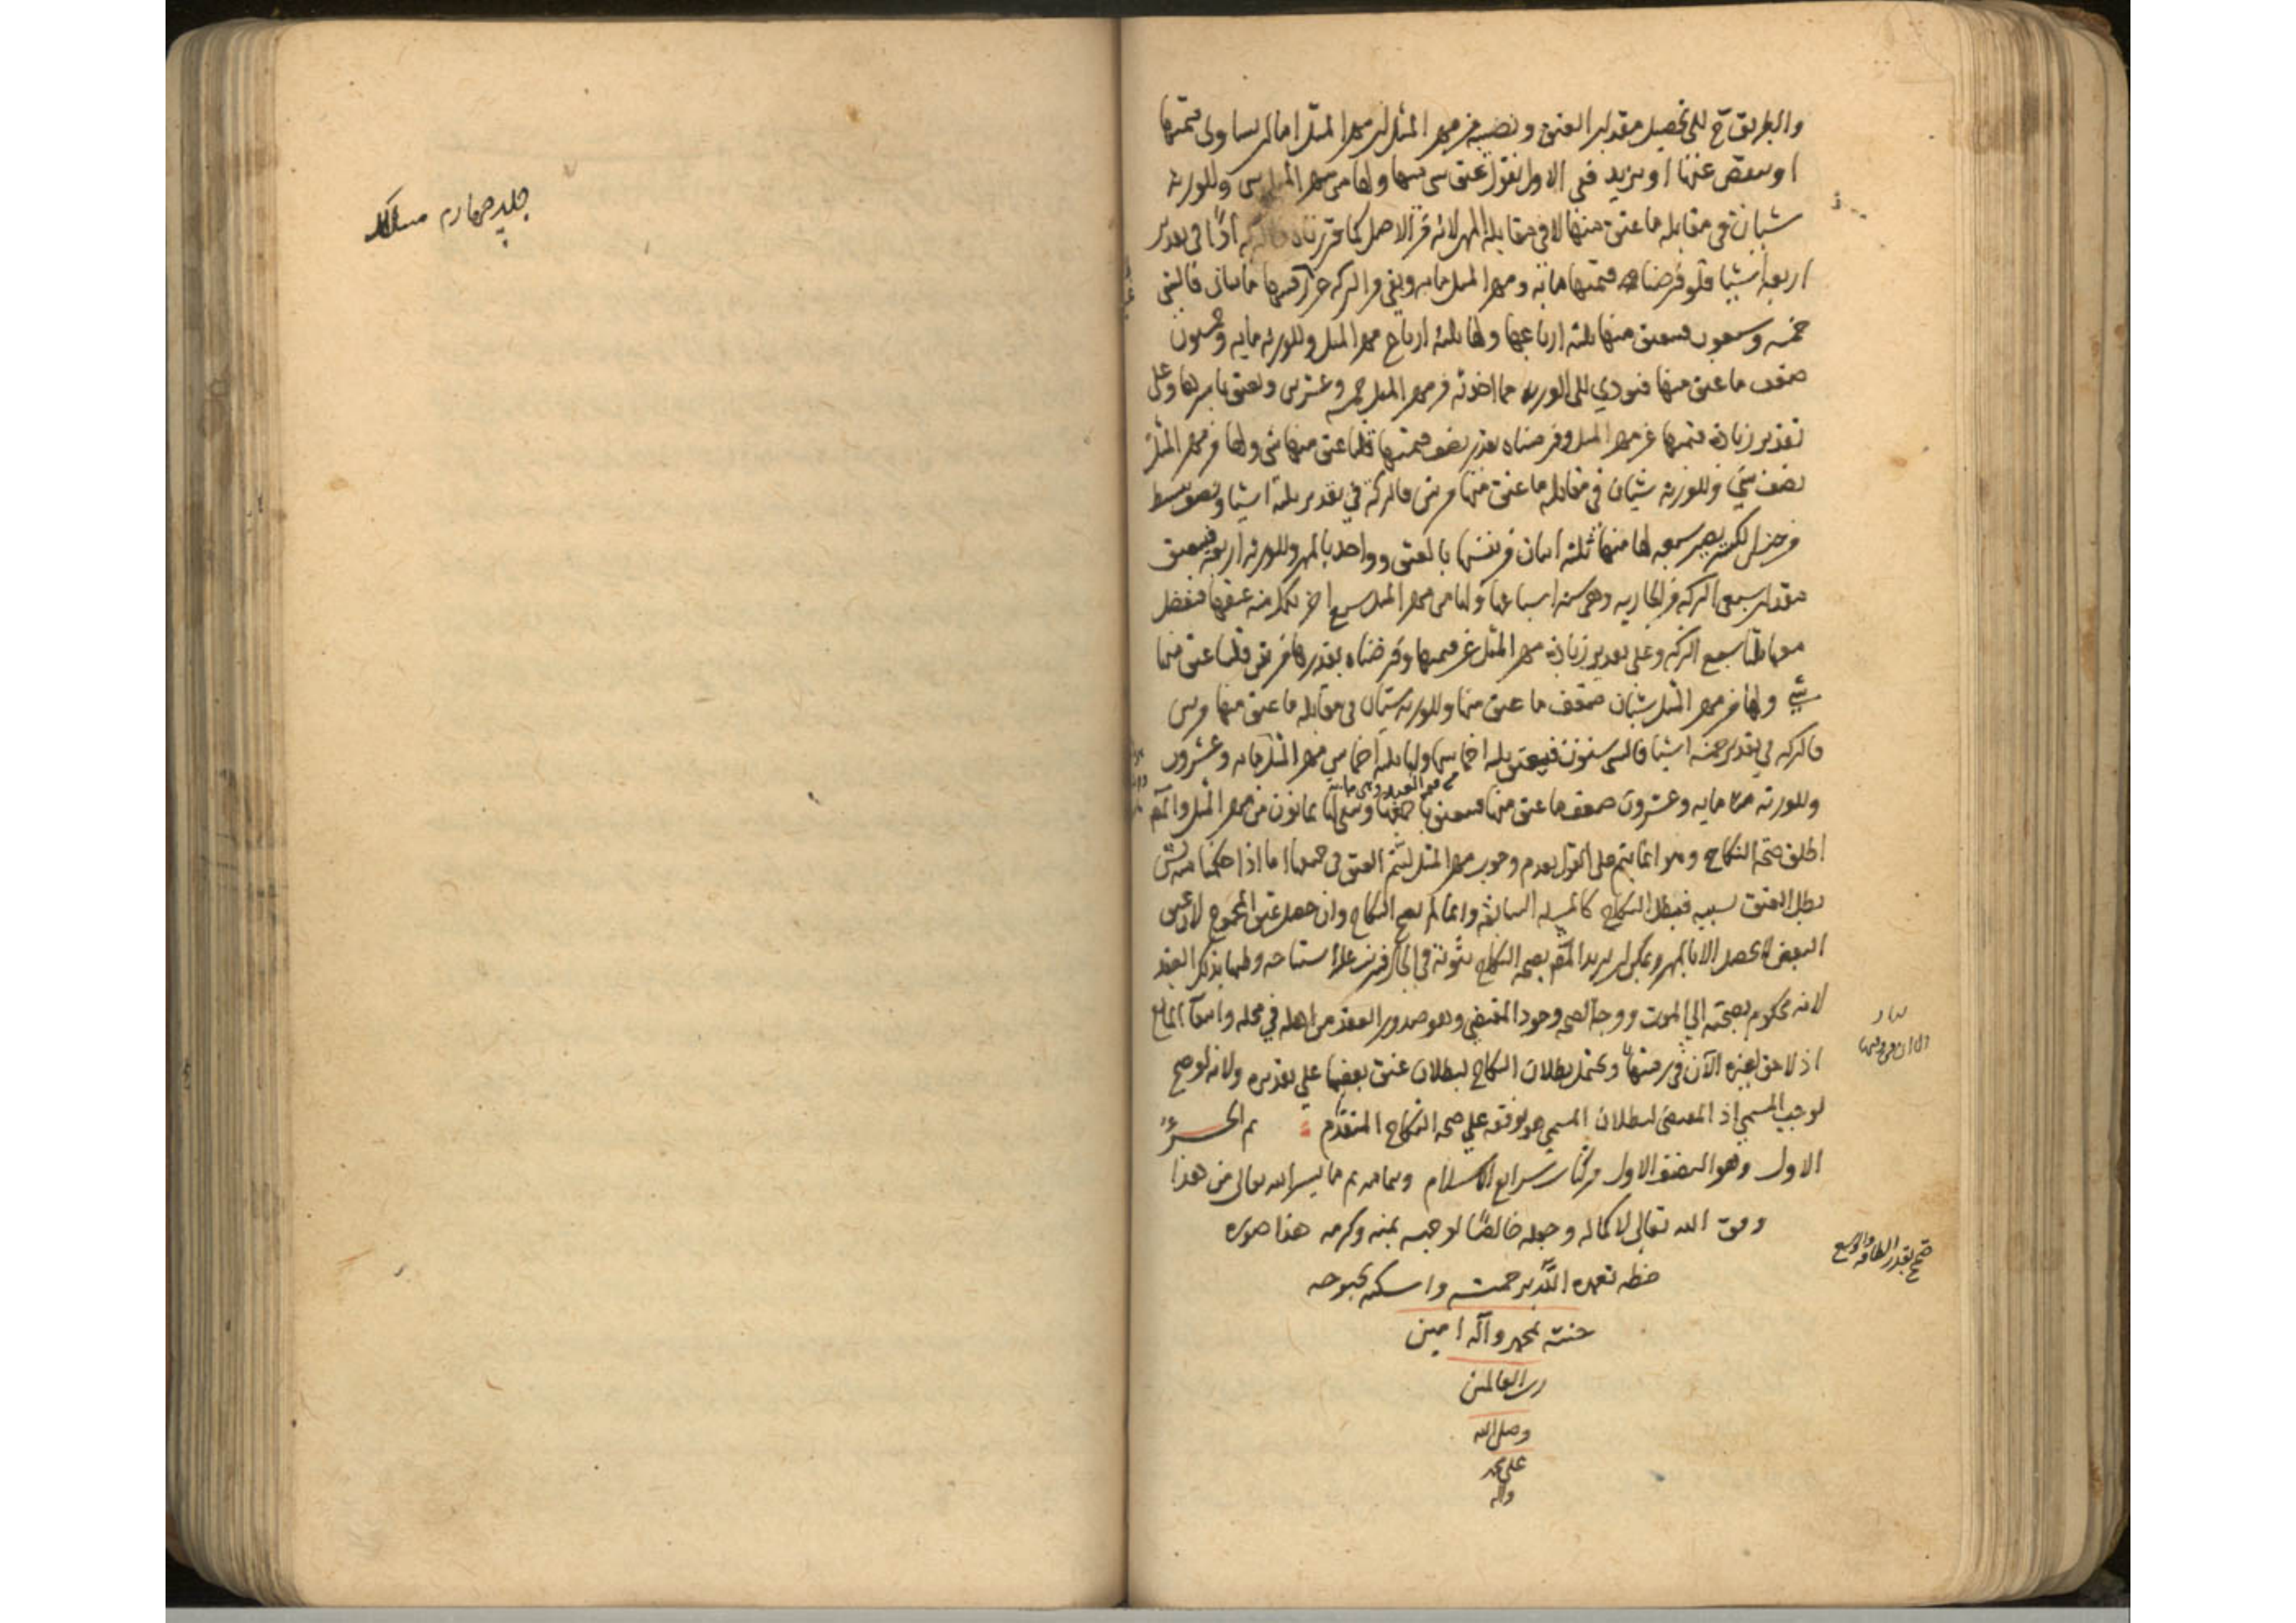 والطريق ح الى تحصيل مقدار العتق ونصيبه من مهر المثل ان مهر المثل اما ان يساوى قيمتها
او ينقص عنها او يزيد ففى الاول نقول عتق شئ منها ولها من مهر المثل شئ وللورثة
شيئان فى مقابله ما عتق منها لا فى مقابلة المهر لانه من الاصل كما قررناه فالتركه اذًا فى تقدير
اربعة اشيا فلو فرضنا قيمتها مائة ومهر المثل مايه وبقى من التركه غير قيمتها مائتان فالشئ
خمسه وسبعون فينعتق منها ثلثة ارباعها ولها ثلثة ارباع مهر المثل وللورثه مايه وخمسون
ضعف ما عتق منها فتؤدي الى الورثه مما اخذته من مهر المثل خمسه وعشرين وتعتق باسرها وعلى
تقدير زيادة قيمتها عن مهر المثل وفرضناه بقدر نصف قيمتها قلنا عتق منها شئ ولها من مهر المثل
نصف شئ وللورثه شيئان فى مقابله ما عتق منها من شئ فالتركة في تقدير ثلثة اشيا ونصف تبسط
من جنس الكسر يصير سبعه لها منها ثلثه اثنان من نفسها بالعتق وواحد بالمهر وللورثه اربعه فينعتق
مقدار سبعى التركه من الجاريه وهى سته اسباعها ولها من مهر المثل سبع اخر تكمل منه عتقها فيفضل
معها ثلثا سبع التركه وعلى تقدير زيادة مهر المثل عن قيمتها وفرضناه بقدرها مرتين قلنا عتق منها
شئ ولها من مهر المثل شيئان ضعف ما عتق منها وللورثه شيئان فى مقابله ما عتق منها من شئ
فالتركه في تقدير خمسه اشيا فالشئ ستون فينعتق ثلثه اخماسها ولها ثلثه اخماس مهر المثل مايه وعشرون
وللورثه مايه وعشرون ضعف ما عتق منها فينعتق باقيها ويبقى لها ثمانون من مهر المثل والمص
اطلق صحة النكاح وهو انما يتم على القول بعدم وجوب مهر المثل ليتم العتق فى جميعها اما اذا حكمنا به لمن
بطل العتق بسببه فيبطل النكاح كالمسئله السابقة وانما لم يصح النكاح وان حصل عتق المجموع لان عتق
البعض لا يحصل الا بالمهر ويمكن ان يريد المص بصحه النكاح ثبوته فى الحال فيترتب عليه استباحه وطيها بذلك العقد
لانه محكوم بصحته الي الموت ووجه الصحه وجود المقتضي وهو صدور العقد من اهله في محله وانتفاء المانع
اذ لاحق لغيره الآن فى رقبتها ويحتمل بطلان النكاح لبطلان عتق بعضها علي تقديره ولانه لو صح
لوجب المسمي اذ المقتضى لبطلان المسمى هو توقفه علي صحه النكاح المتقدم تم الجزء
الاول وهو النصف الاول من كتاب شرايع الاسلام وبتمامه تم ما يسر الله تعالى من هذا
وفق الله تعالى لاكماله وجعله خالصًا لوجهه بمنه وكرمه هذا صوره
خطه تغمده الله برحمته واسكنه بحبوحه
جنته بمحمد وآله امين
رب العالمين
وصلى الله
على محمد
واله
صح بقدر الطاقة والوسع
جلد چهارم مسالک